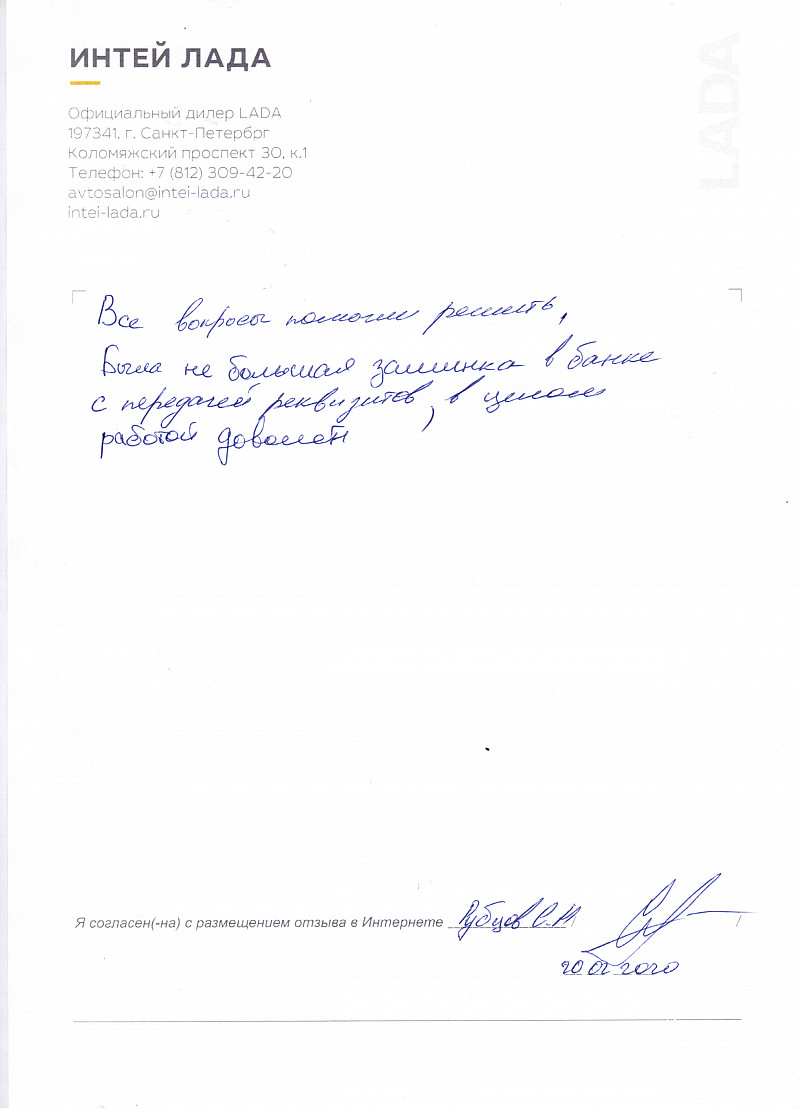 ИНТЕЙ ЛАДА
LADA
Официальный дилер LADA
197341, г. Санкт-Петербрг
Коломяжский проспект 30, к.1
Телефон: +7 (812) 309-42-20
avtosalon@intei-lada.ru
intei-lada.ru
Все вопросы помогли решить,
Была не большая заминка в банке
с передачей реквизитов, в целом
работой доволен
Я согласен(-на) с размещением отзыва в Интернете Рубцов С.Н
20.02.2020